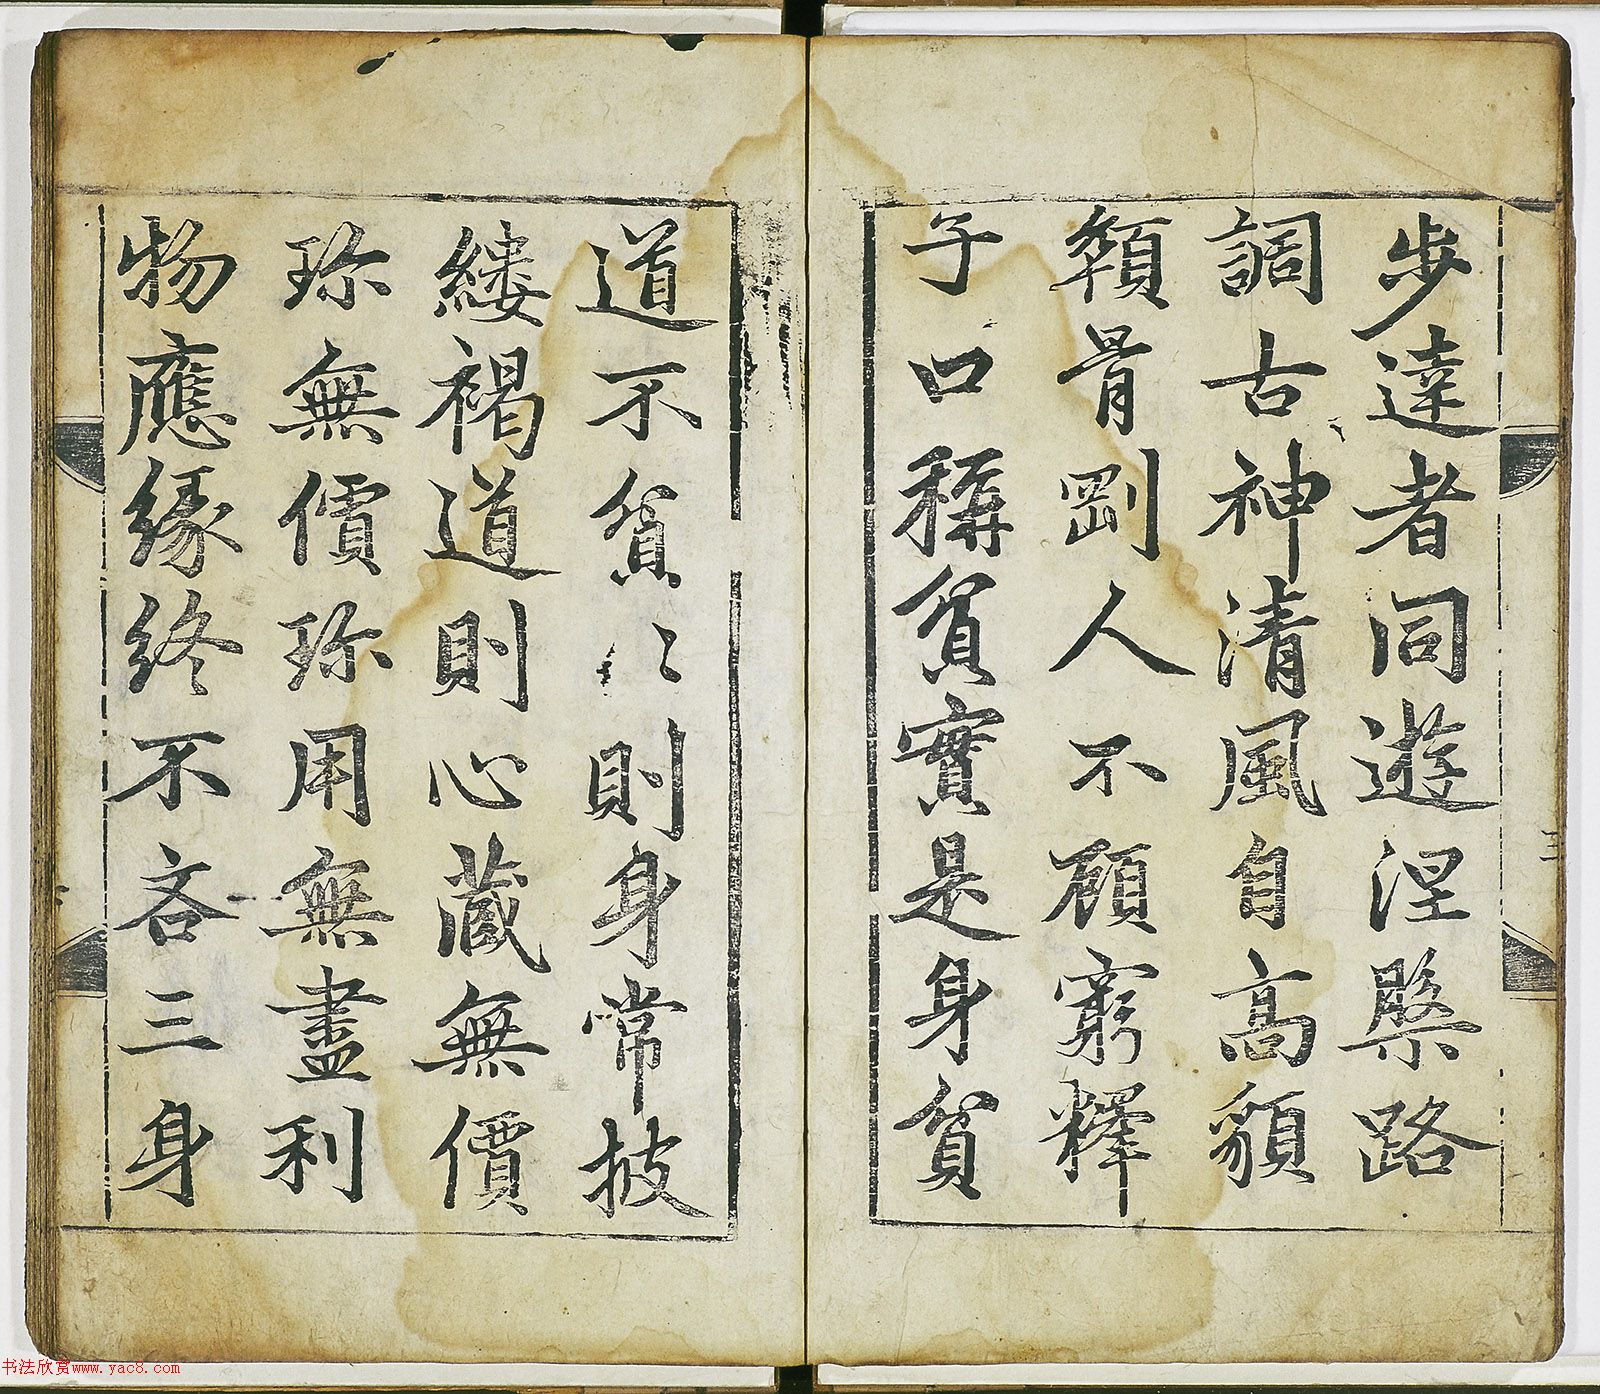 步達者同遊涅槃路
調古神清風自高貌
顇骨剛人不顧窮釋
子口稱貧實是身貧
道不貧〻則身常披
縷褐道則心藏無價
珎無價珎用無盡利
物應緣終不吝三身
三
书法欣赏www.yac8.com